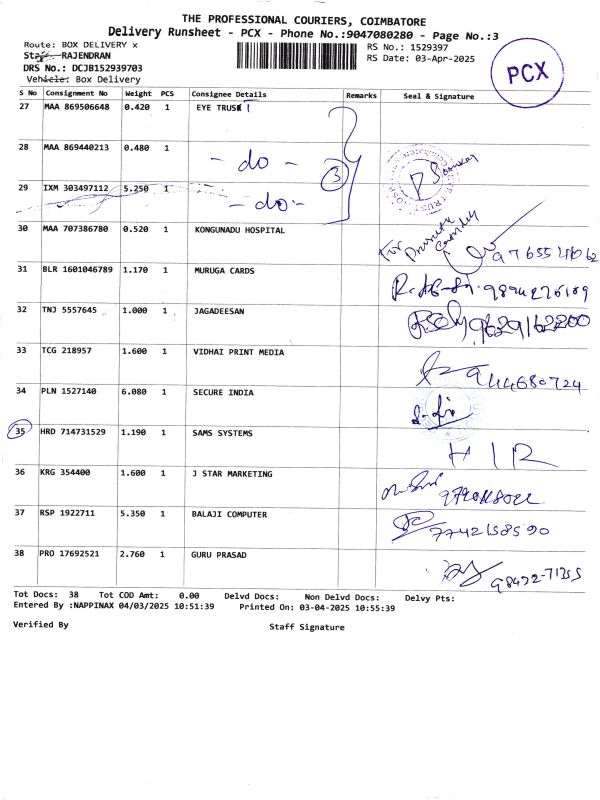 THE PROFESSIONAL COURIERS, COIMBATORE
Delivery Runsheet - PCX - Phone No.:9047080280 - Page No.:3
Route: BOX DELIVERY x
RS No.: 1529397
Staff: RAJENDRAN
RS Date: 03-Apr-2025
DRS No.: DCJB152939703
Vehicle: Box Delivery
PCX
S No Consignment No Weight PCS Consignee Details Remarks Seal & Signature
27 MAA 869506648 0.420 1 EYE TRUST
28 MAA 869440213 0.480 1 - do -
3
29 IXM 303497112 5.250 1 - do -
30 MAA 707386780 0.520 1 KONGUNADU HOSPITAL
For
31 BLR 1601046789 1.170 1 MURUGA CARDS
32 TNJ 5557645 1.000 1 JAGADEESAN 9629162200
33 TCG 218957 1.600 1 VIDHAI PRINT MEDIA 944680724
34 PLN 1527140 6.080 1 SECURE INDIA
35 HRD 714731529 1.190 1 SAMS SYSTEMS H I R
36 KRG 354400 1.600 1 J STAR MARKETING
37 RSP 1922711 5.350 1 BALAJI COMPUTER 7742158590
38 PRO 17692521 2.760 1 GURU PRASAD 98422-71355
Tot Docs: 38 Tot COD Amt: 0.00 Delvd Docs: Non Delvd Docs: Delvy Pts:
Entered By :NAPPINAX 04/03/2025 10:51:39 Printed On: 03-04-2025 10:55:39
Verified By Staff Signature